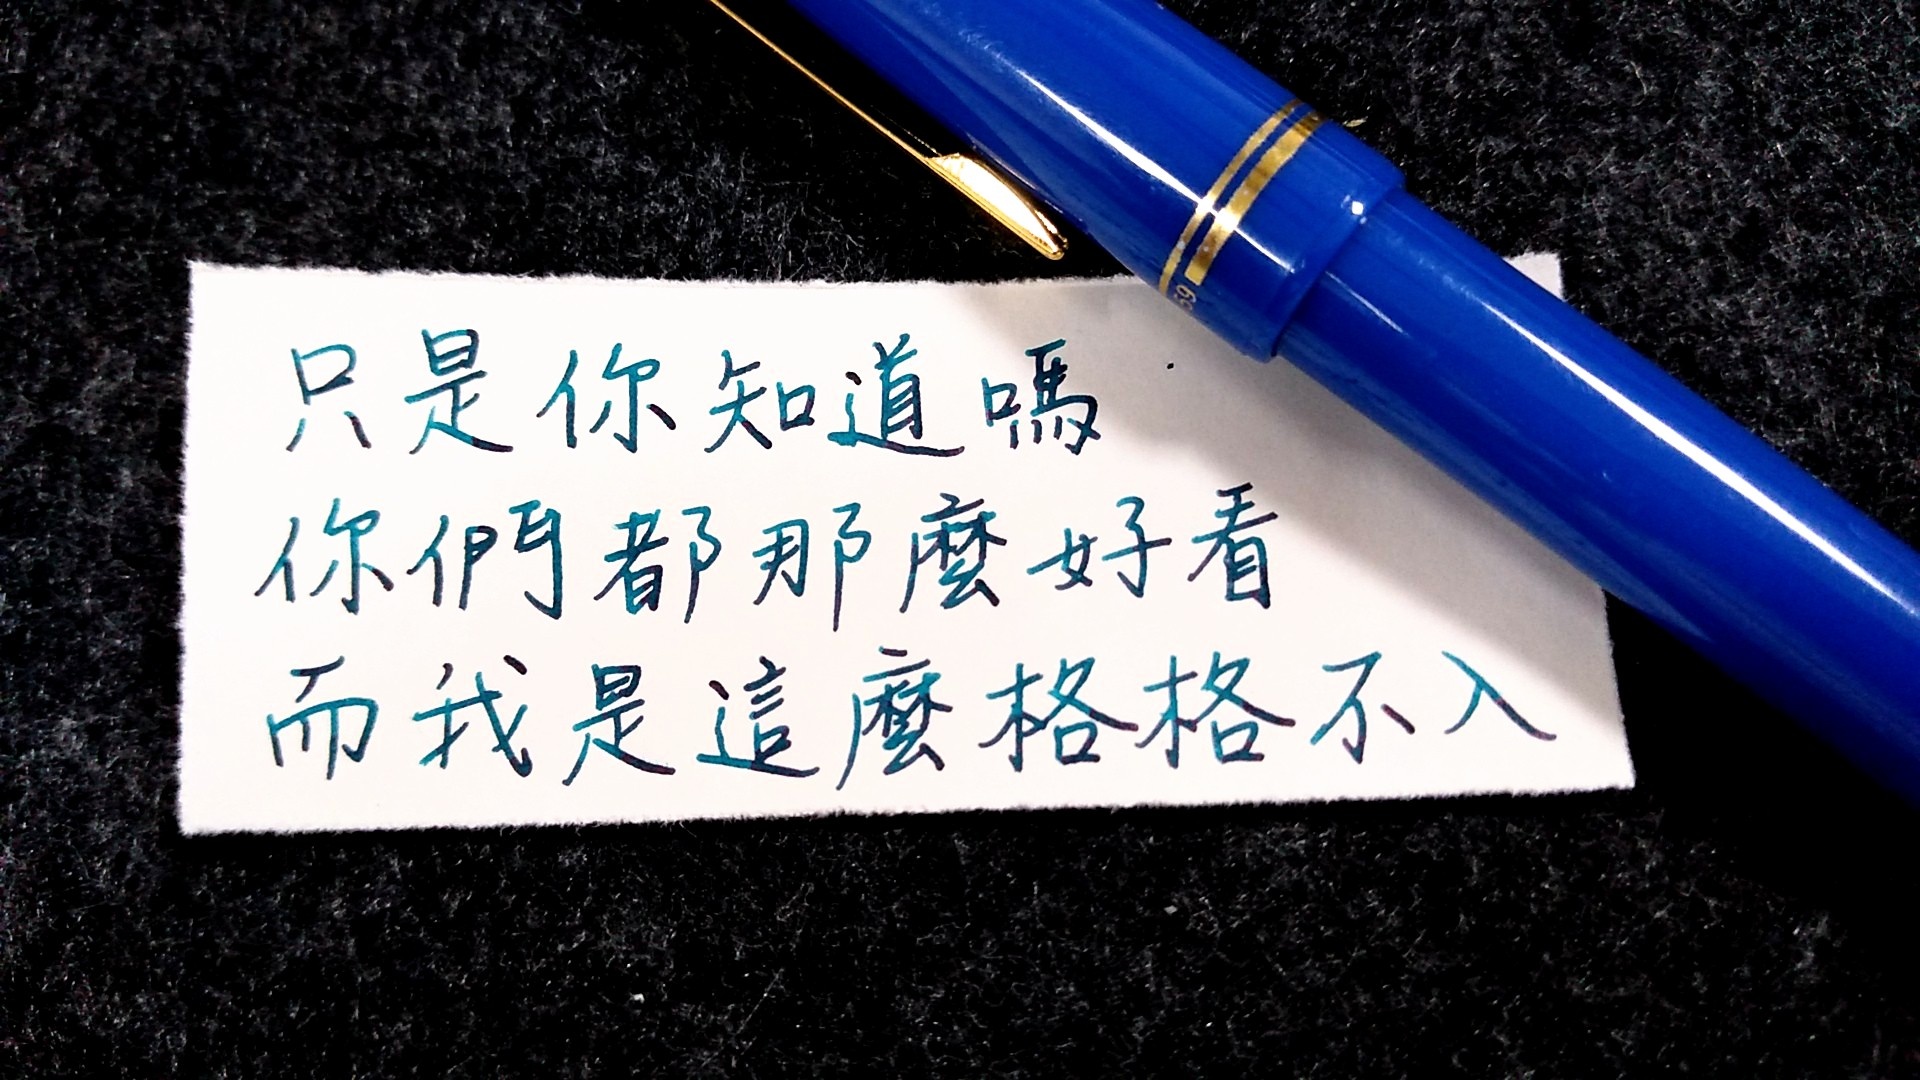 只是你知道嗎
你們都那麼好看
而我是這麼格格不入